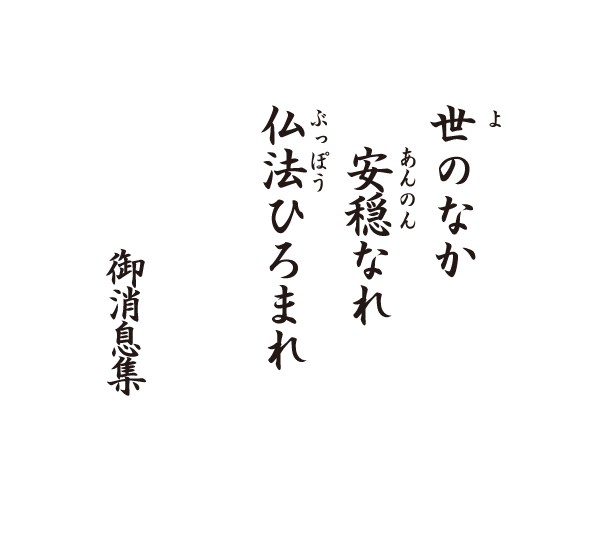 世のなか
よ
安穏なれ
あんのん
仏法ひろまれ
ぶっぽう
御消息集